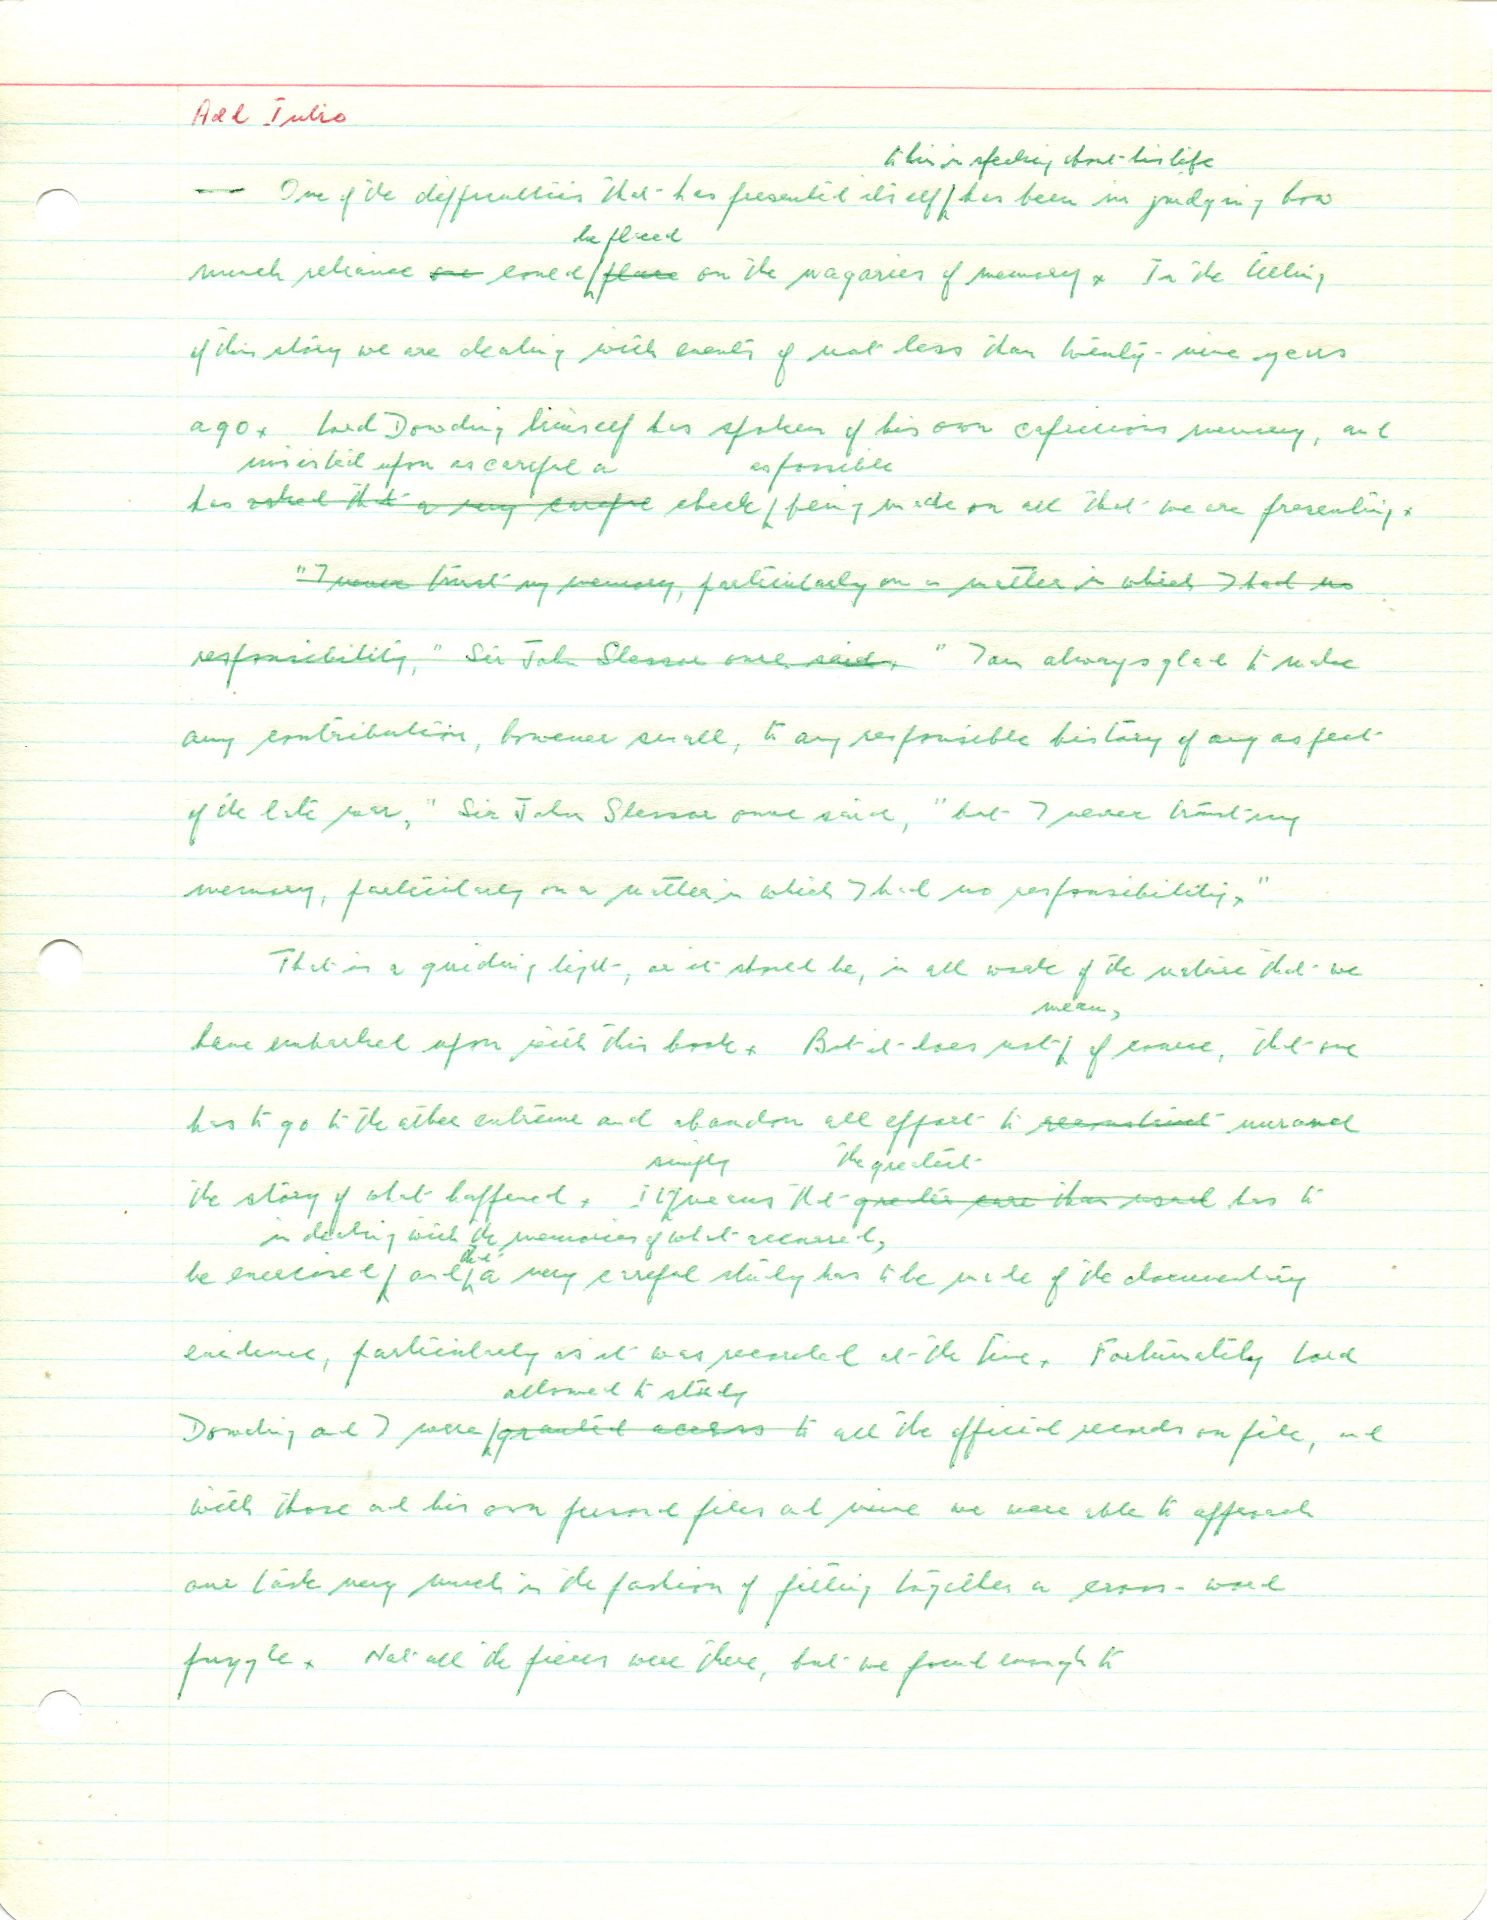 Add Intro
to him in speaking about his life
— One of the difficulties that has presented itself has been in judging how
be placed
much reliance one could place on the vagaries of memory. In the telling
of this story we are dealing with events of not less than twenty-nine years
ago. Lord Dowding himself has spoken of his own capricious memory, and
insisted upon as careful a as possible
has asked that a very careful check being made on all that we are presenting.
"I never trust my memory, particularly on a matter in which I had no
responsibility," Sir John Slessor once said. "I am always glad to make
any contribution, however small, to any responsible history of any aspect
of the late war," Sir John Slessor once said, "but I never trust my
memory, particularly on a matter in which I had no responsibility."
That is a guiding light, or it should be, in all work of the nature that we
mean,
have embarked upon with this book. But it does not of course, that one
has to go to the other extreme and abandon all effort to reconstruct unravel
simply the greatest
the story of what happened. It means that greater care than usual has to
in dealing with the memories of what occurred,
that
be exercised and a very careful study has to be made of the documentary
evidence, particularly as it was recorded at the time. Fortunately Lord
allowed to study
Dowding and I were granted access to all the official records on file, and
with those and his own personal files and mine we were able to approach
our task very much in the fashion of fitting together a cross-word
puzzle. Not all the pieces were there, but we found enough to